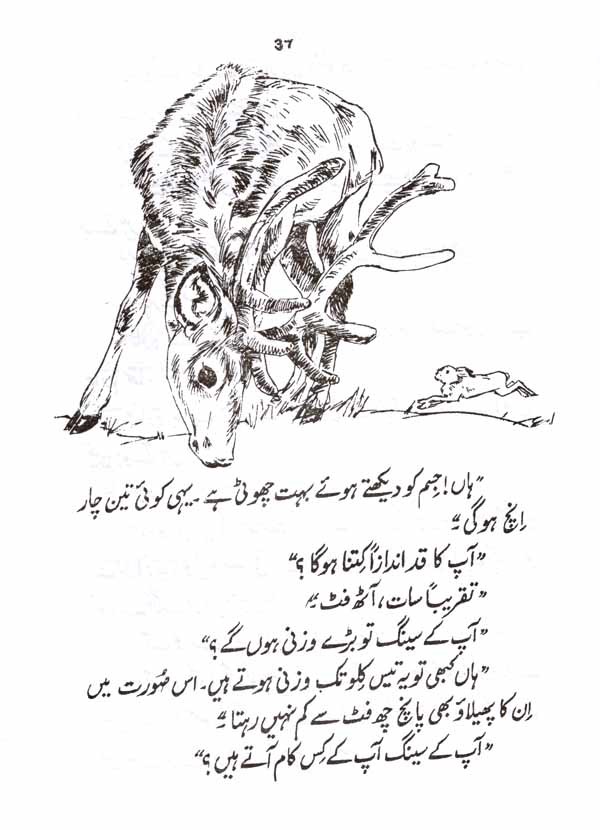 37
”ہاں! جِسم کو دیکھتے ہوئے بہت چھوٹی ہے۔ یہی کوئی تین چار
اِنچ ہو گی۔“
”آپ کا قد اندازاً کِتنا ہو گا؟“
”تقریباً سات، آٹھ فٹ۔“
”آپ کے سینگ تو بڑے وزنی ہوں گے؟“
”ہاں کبھی تو یہ تیس کِلو تک وزنی ہوتے ہیں۔ اس صُورت میں
اِن کا پھیلاؤ بھی پانچ چھ فٹ سے کم نہیں رہتا۔“
”آپ کے سینگ آپ کے کِس کام آتے ہیں؟“